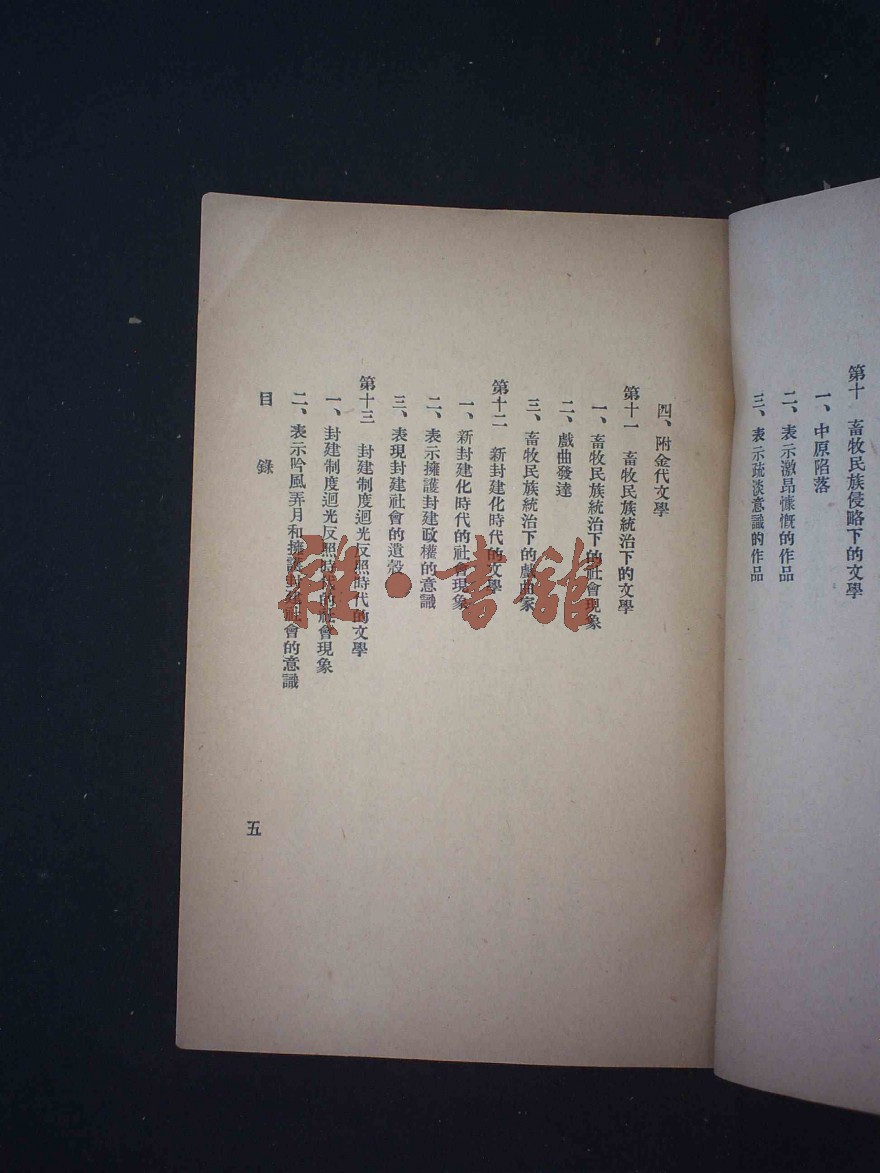 第十　畜牧民族侵略下的文學
一、中原陷落
二、表示激昂慷慨的作品
三、表示疏淡意識的作品
四、附金代文學
第十一　畜牧民族統治下的文學
一、畜牧民族統治下的社會現象
二、戲曲發達
三、畜牧民族統治下的戲曲家
第十二　新封建化時代的文學
一、新封建化時代的社會現象
二、表示擁護封建政權的意識
三、表現封建社會的遺殼
第十三　封建制度迴光反照時代的文學
一、封建制度迴光反照時代的社會現象
二、表示吟風弄月和擁護封建社會的意識
目　錄
五
雜·書館